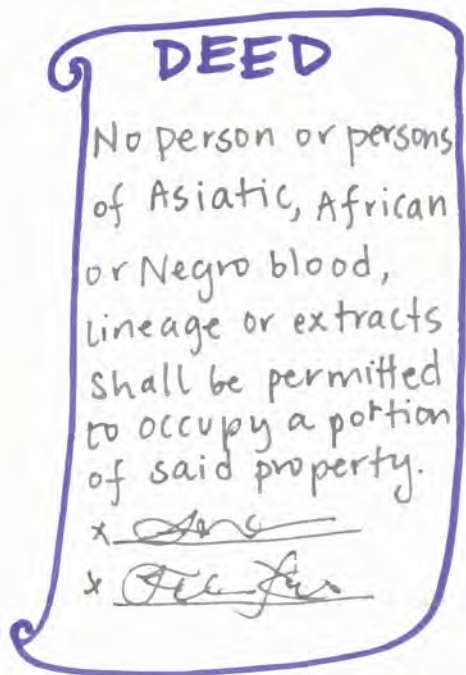 DEED
No person or persons
of Asiatic, African
or Negro blood,
lineage or extracts
shall be permitted
to occupy a portion
of said property.
x
x